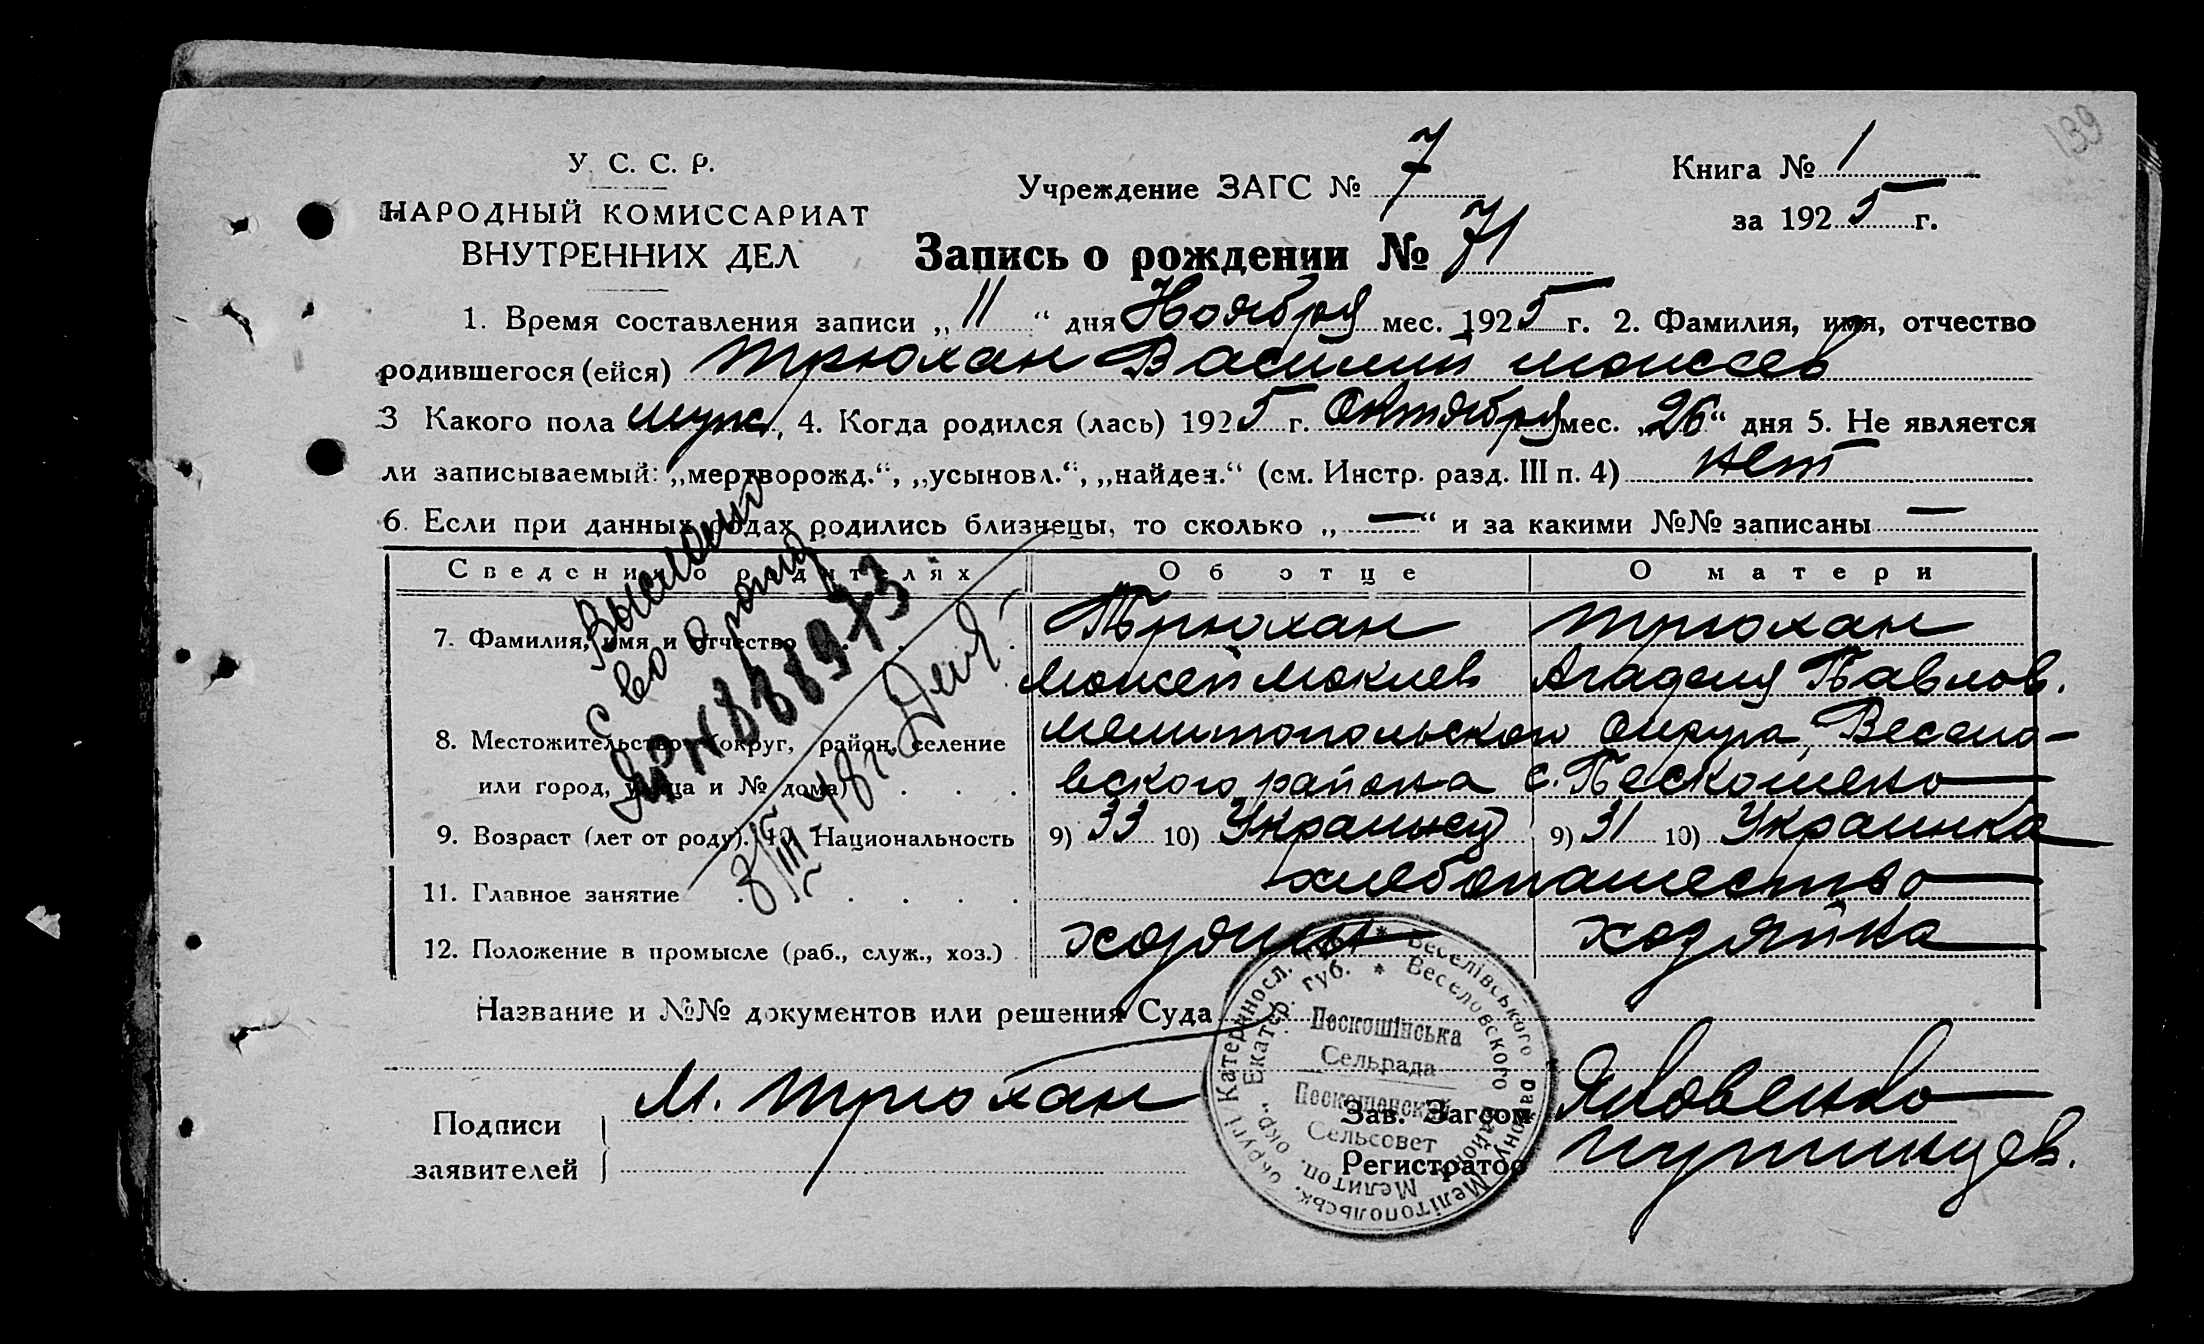 139
У. С. С. Р.
НАРОДНЫЙ КОМИССАРИАТ
ВНУТРЕННИХ ДЕЛ
Учреждение ЗАГС № 7
Книга № 1
за 1925 г.
Запись о рождении № 71
1. Время составления записи „11“ дня Ноября мес. 1925 г. 2. Фамилия, имя, отчество
родившегося (ейся) Трюхан Василий Моисеев
3 Какого пола муж., 4. Когда родился (лась) 1925 г. Октября мес. „26“ дня 5. Не является
ли записываемый: „мертворожд.“, „усыновл.“, „найден.“ (см. Инстр. разд. III п. 4) нет
6. Если при данных родах родились близнецы, то сколько „—“ и за какими №№ записаны —
Сведения о родителях Об отце О матери
7. Фамилия, имя и отчество Трюхан Трюхан
Моисей Мокиев Агафия Павлов.
8. Местожительство (округ, район, селение Мелитопольского округа, Весело-
или город, улица и № дома) вского района с. Пескошено
9. Возраст (лет от роду). 10. Национальность 9) 33 10) Украинец 9) 31 10) Украинка
11. Главное занятие хлебопашество
12. Положение в промысле (раб., служ., хоз.) хозяин хозяйка
Название и №№ документов или решения Суда
Подписи
заявителей
М. Трюхан
Зав. Загсом Яковенко
Регистратор
Пескошінська
Сельрада
Пескошенский
Сельсовет
Катериносл. губ. * Веселівського району Мелітопольськ. округі
Екатер. губ. * Веселовского района Мелитоп. окр.